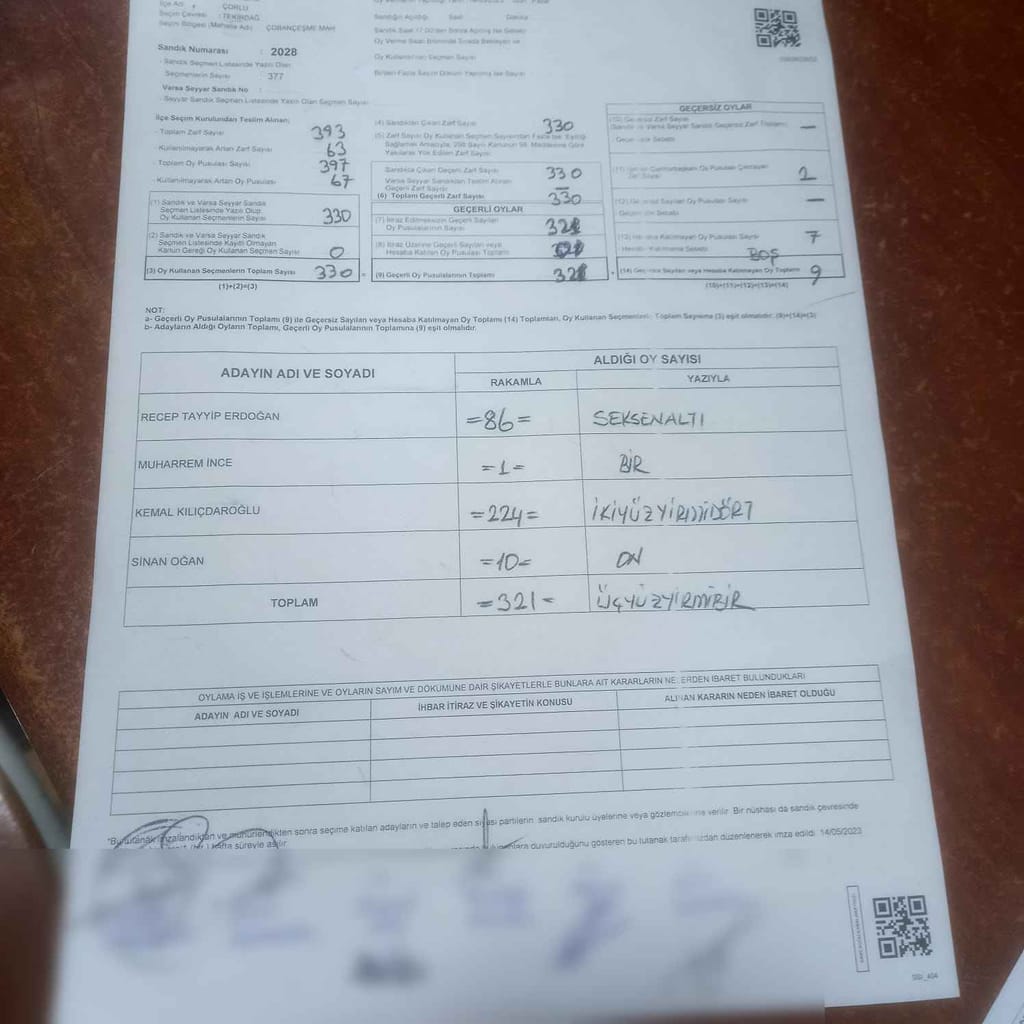 İlçe Adı : ÇORLU
Seçim Çevresi : TEKİRDAĞ
Seçim Bölgesi (Mahalle Adı) ÇOBANÇEŞME MAH
Sandık Numarası : 2028
- Sandık Seçmen Listesinde Yazılı Olan
Seçmenlerin Sayısı : 377
Varsa Seyyar Sandık No :
- Seyyar Sandık Seçmen Listesinde Yazılı Olan Seçmen Sayısı
Oy Kullanan Seçmen Sayısı
İlçe Seçim Kurulundan Teslim Alınan;
- Toplam Zarf Sayısı 393
- Kullanılmayarak Artan Zarf Sayısı 63
- Toplam Oy Pusulası Sayısı 397
- Kullanılmayarak Artan Oy Pusulası 67
(1) Sandık ve Varsa Seyyar Sandık
Seçmen Listesinde Yazılı Olup
Oy Kullanan Seçmenlerin Sayısı 330
(2) Sandık ve Varsa Seyyar Sandık
Seçmen Listesinde Kaydı Olmayan
Kanun Gereği Oy Kullanan Seçmen Sayısı 0
(3) Oy Kullanan Seçmenlerin Toplam Sayısı 330 =
(1)+(2)=(3)
(4) Sandıktan Çıkan Zarf Sayısı 330
(5) Zarf Sayısı Oy Kullanan Seçmen Sayısından Fazla ise, Eşitliği
Sağlamak Amacıyla, 298 Sayılı Kanunun 98. Maddesine Göre
Yakılarak Yok Edilen Zarf Sayısı
Sandıkta Çıkan Geçerli Zarf Sayısı 330
Varsa Seyyar Sandıktan Teslim Alınan
Geçerli Zarf Sayısı —
(6) Toplam Geçerli Zarf Sayısı 330
GEÇERLİ OYLAR
(7) İtiraz Edilmeksizin Geçerli Sayılan
Oy Pusulalarının Sayısı 321
(8) İtiraz Üzerine Geçerli Sayılan veya
Hesaba Katılan Oy Pusulası Toplamı
(9) Geçerli Oy Pusulalarının Toplamı 321 +
GEÇERSİZ OYLAR
—
2
—
7
BOŞ
(14) Geçersiz Sayılan veya Hesaba Katılmayan Oy Toplamı 9
(10)+(11)+(12)+(13)=(14)
NOT:
a- Geçerli Oy Pusulalarının Toplamı (9) ile Geçersiz Sayılan veya Hesaba Katılmayan Oy Toplamı (14) Toplamları, Oy Kullanan Seçmenlerin Toplam Sayısına (3) eşit olmalıdır. (9)+(14)=(3)
b- Adayların Aldığı Oyların Toplamı, Geçerli Oy Pusulalarının Toplamına (9) eşit olmalıdır.
ADAYIN ADI VE SOYADI
ALDIĞI OY SAYISI
RAKAMLA YAZIYLA
RECEP TAYYİP ERDOĞAN =86= SEKSENALTI
MUHARREM İNCE =1= BİR
KEMAL KILIÇDAROĞLU =224= İKİYÜZYİRMİDÖRT
SİNAN OĞAN =10= ON
TOPLAM =321= ÜÇYÜZYİRMİBİR
OYLAMA İŞ VE İŞLEMLERİNE VE OYLARIN SAYIM VE DÖKÜMÜNE DAİR ŞİKAYETLERLE BUNLARA AİT KARARLARIN NELERDEN İBARET BULUNDUKLARI
ADAYIN ADI VE SOYADI İHBAR İTİRAZ VE ŞİKAYETİN KONUSU ALINAN KARARIN NEDEN İBARET OLDUĞU
*Bu tutanak imzalandıktan ve mühürlendikten sonra seçime katılan adayların ve talep eden siyasi partilerin sandık kurulu üyelerine veya gözlemcilerine verilir. Bir nüshası da sandık çevresinde
hafta süreyle asılır. duyurulduğunu gösteren bu tutanak tarafımızdan düzenlenerek imza edildi. 14/05/2023